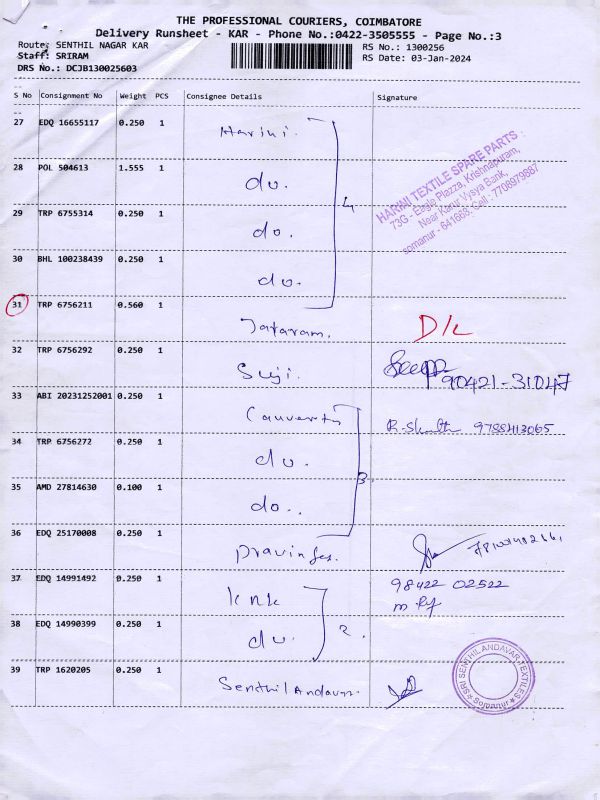 THE PROFESSIONAL COURIERS, COIMBATORE
Delivery Runsheet - KAR - Phone No.:0422-3505555 - Page No.:3
Route: SENTHIL NAGAR KAR
RS No.: 1300256
Staff: SRIRAM
RS Date: 03-Jan-2024
DRS No.: DCJB130025603
S No Consignment No Weight PCS Consignee Details Signature
27 EDQ 16655117 0.250 1 Harini.
28 POL 504613 1.555 1 do.
HARINI TEXTILE SPARE PARTS
73G - Eagle Plazza, Krishnapuram,
Near Karur Vysya Bank,
somanur - 641668. Cell : 7708979887
4
29 TRP 6755314 0.250 1 do.
30 BHL 100238439 0.250 1 do.
31 TRP 6756211 0.560 1 Jataram. D/L
32 TRP 6756292 0.250 1 Suji. 90421-31047
33 ABI 20231252001 0.250 1 Cauvery 9788413065
34 TRP 6756272 0.250 1 do.
3
35 AMD 27814630 0.100 1 do..
36 EDQ 25170008 0.250 1
37 EDQ 14991492 0.250 1 knk 98422 02522
38 EDQ 14990399 0.250 1 do. 2.
39 TRP 1620205 0.250 1 Senthil Andavar
SRI SENTHIL ANDAVAR TEXTILES
Somanur